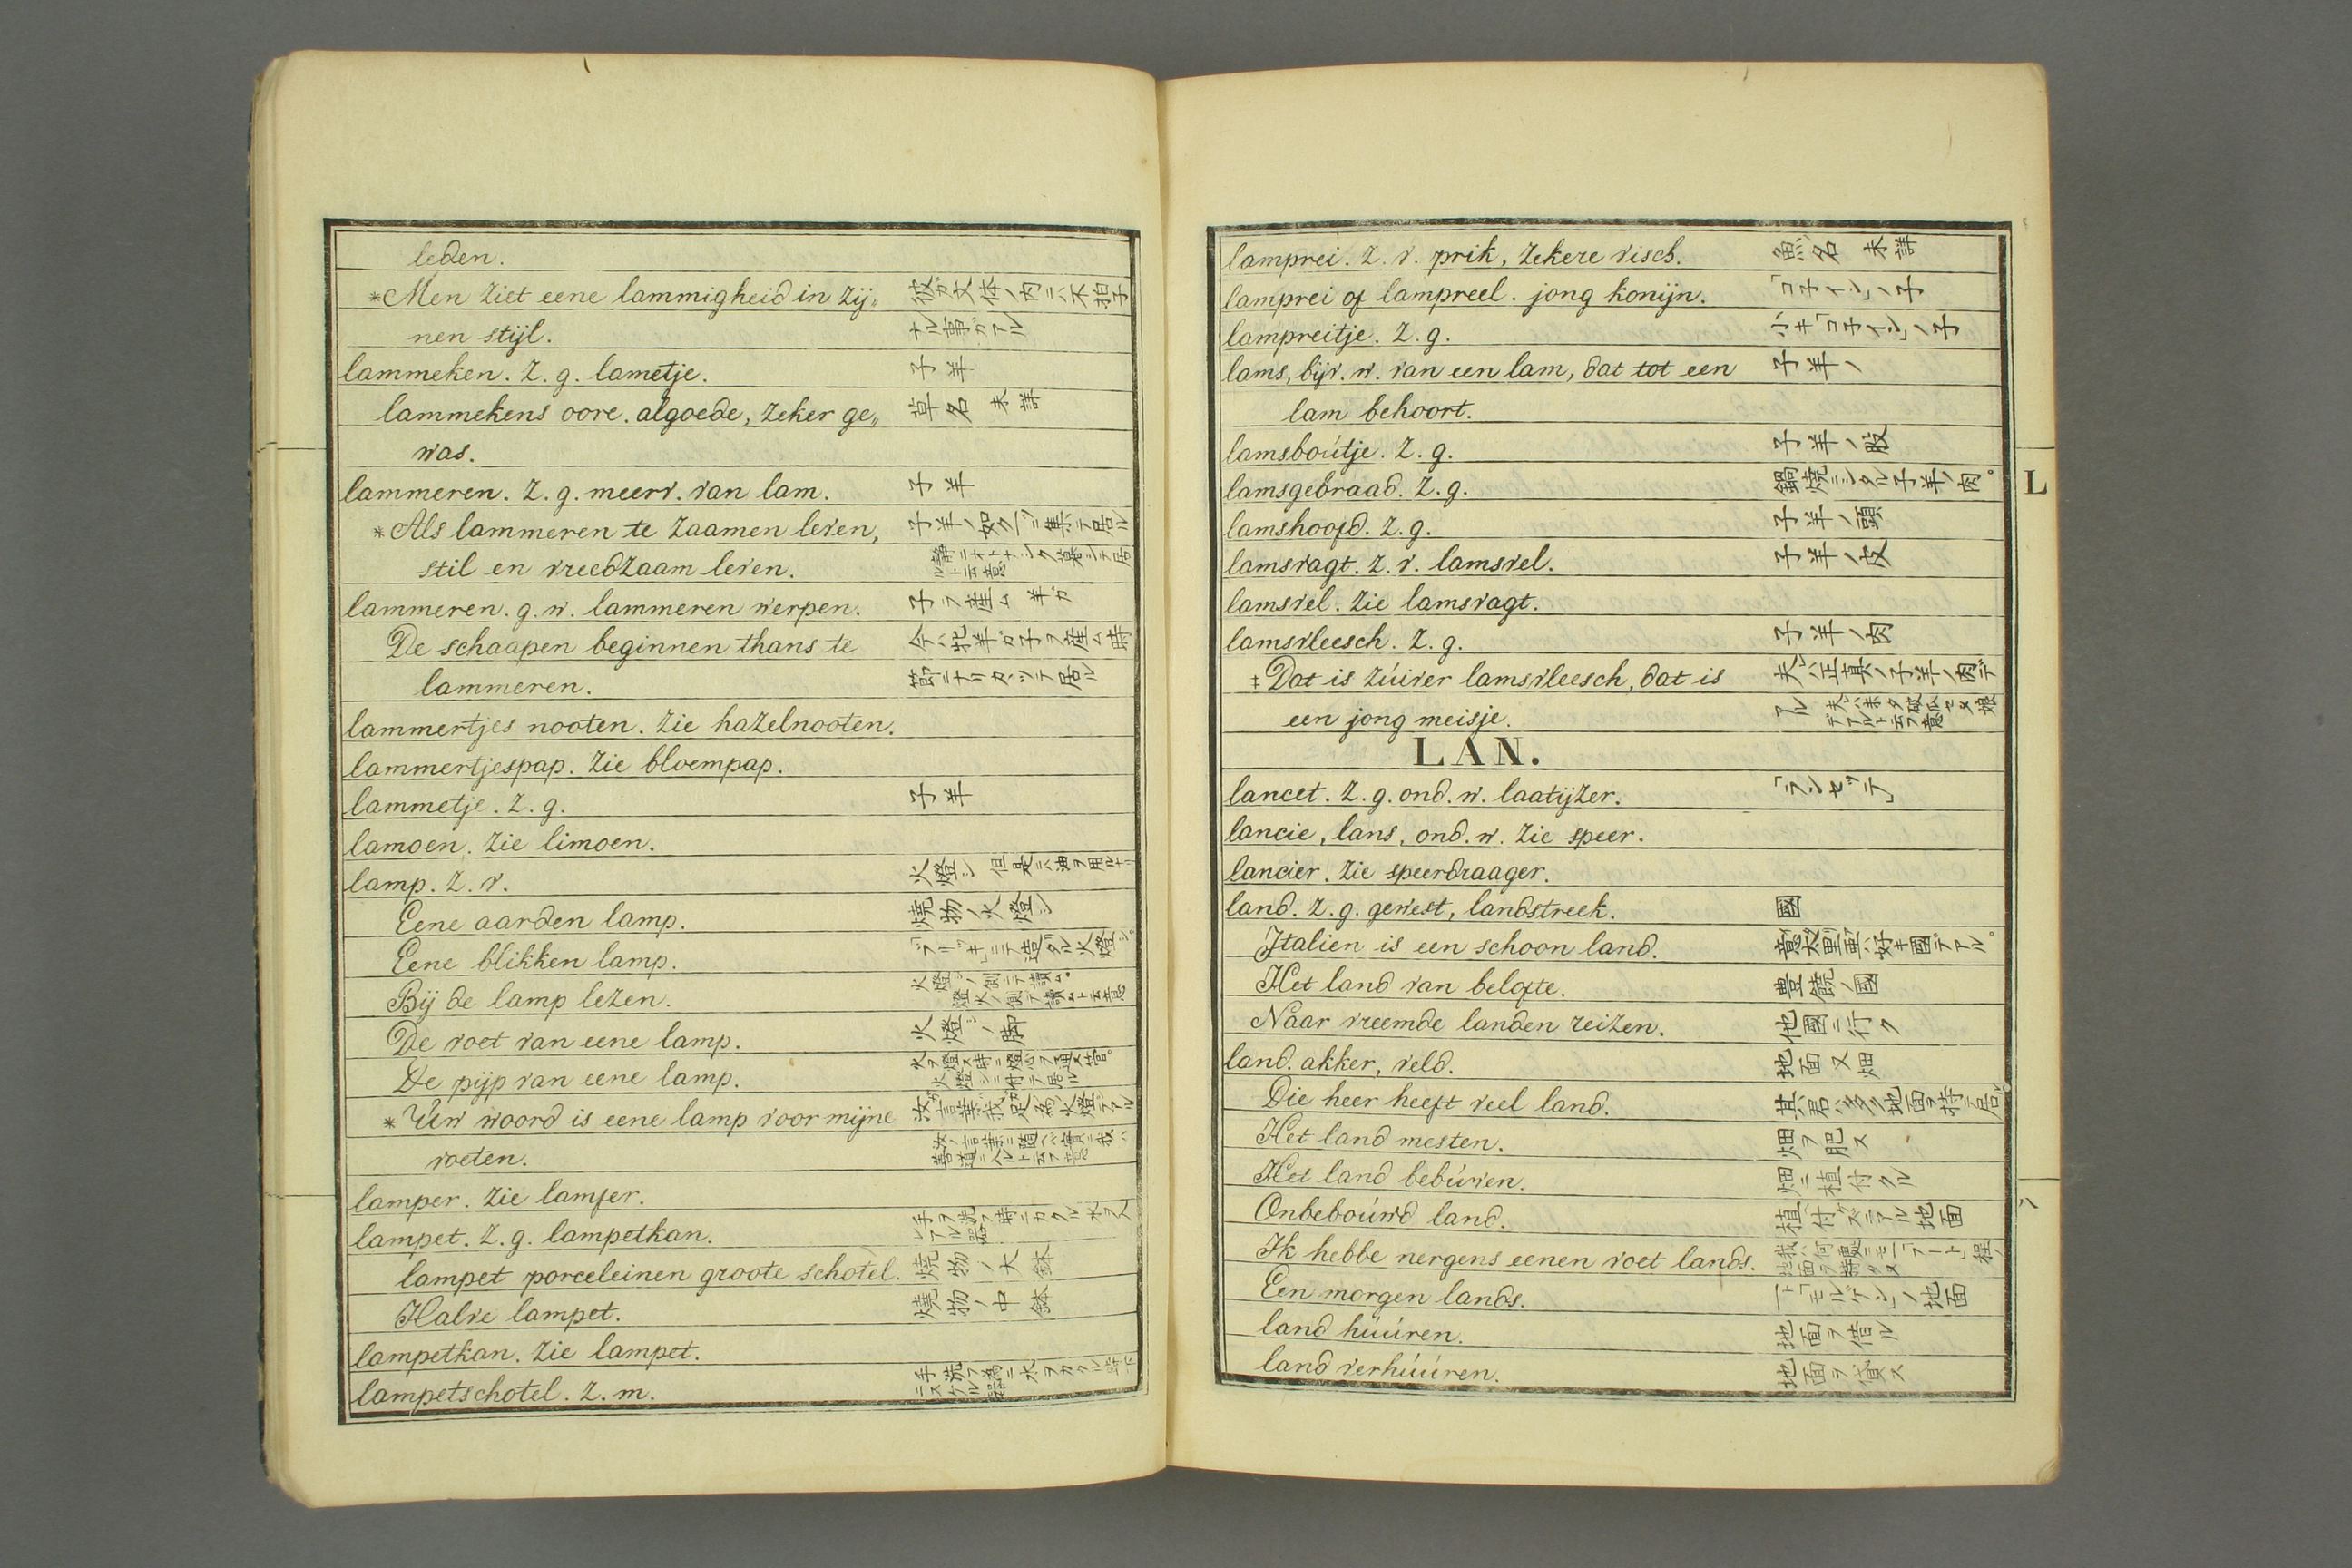 leden.
*Men ziet eene lammigheid in zij„ 彼ガ文体ノ内ニハ不拍子
nen stijl. ナル事ガアル
lammeken. z. g. lametje. 子羊
lammekens oore. algoede, zeker ge„ 草名 未詳
was.
lammeren. z. g. meerv. van lam. 子羊
*Als lammeren te zaamen leven, 子羊ノ如ク一ツニ集テ居ル
stil en vreedzaam leven. 静ニオトナシク暮シテ居ルト云意
lammeren. g. w. lammeren werpen. 子ヲ産ム 羊ガ
De schaapen beginnen thans te 今ハ牝羊ガ子ヲ産ム時
lammeren. 節ニナリカヽツテ居ル
lammertjes nooten. zie hazelnooten.
lammertjespap. zie bloempap.
lammetje. z. g. 子羊
lamoen. zie limoen.
lamp. z. v. 火燈シ 但是ニハ油ヲ用ル
Eene aarden lamp. 焼物ノ火燈シ
Eene blikken lamp. 「ブリッキ」ニテ造タル火燈シ。
Bij de lamp lezen. 火燈シノ側テ讀ム。燈火ノ側テ讀ムト云意
De voet van eene lamp. 火燈シノ脚
De pijp van eene lamp. 火ヲ燈ス時ニ燈心ヲ通ス管。火燈シニ付テ居ル
*Uw woord is eene lamp voor mijne 汝ガ言葉ハ我足ノ為ノ火燈シデアル
voeten. 汝ノ言葉ニ随ヘバ實ニ我ハ善道ニ入ルト云フ意
lamper. zie lamfer.
lampet. z. g. lampetkan. 手ヲ洗フ時ニカクル水ヲ入レテアル器
lampet porceleinen groote schotel. 焼物ノ大鉢
Halve lampet. 焼物ノ中鉢
lampetkan. zie lampet.
lampetschotel. z. m. 手ヲ洗フ為ニ水ヲカクル時下ニスケル器
lamprei. z. v. prik, zekere visch. 魚名 未詳
lamprei of lampreel. jong konijn. 「コネイン」ノ子
lampreitje. z. g. 小キ「コネイン」ノ子
lams, bijv. w. van een lam, dat tot een 子羊ノ
lam behoort.
lamsboutje. z. g. 子羊ノ股
lamsgebraad. z. g. 鍋焼ニシタル子羊ノ肉。
lamshoofd. z. g. 子羊ノ頭
lamsvagt. z. v. lamsvel. 子羊ノ皮
lamsvel. zie lamsvagt.
lamsvleesch. z. g. 子羊ノ肉
‡Dat is zuiver lamsvleesch, dat is 夫ハ正真ノ子羊ノ肉デ
een jong meisje. アル 夫ハ未タ破瓜セヌ娘デアルト云フ意
LAN.
lancet. z. g. ond. w. laatijzer. 「ランセッテ」
lancie, lans, ond. w. zie speer.
lancier. zie speerdraager.
land. z. g. gewest, landstreek. 國
Italien is een schoon land. 意太里亜ハ好キ國デアル。
Het land van belofte. 豊饒ノ國
Naar vreemde landen reizen. 他國ニ行ク
land. akker, veld. 地面 又 畑
Die heer heeft veel land. 其君ハ多ク地面ヲ持テ居ル
Het land mesten. 畑ヲ肥ス
Het land bebúwen. 畑ニ植付クル
Onbeboúwd land. 植付ケズニアル地面
Ik hebbe nergens eenen voet lands. 我ハ何處ニモ一「フート」程ノ地面ヲ持タヌ
Een morgen lands. 一ト「モルゲン」ノ地面
land húúren. 地面ヲ借ル
land verhúúren. 地面ヲ貸ス
L